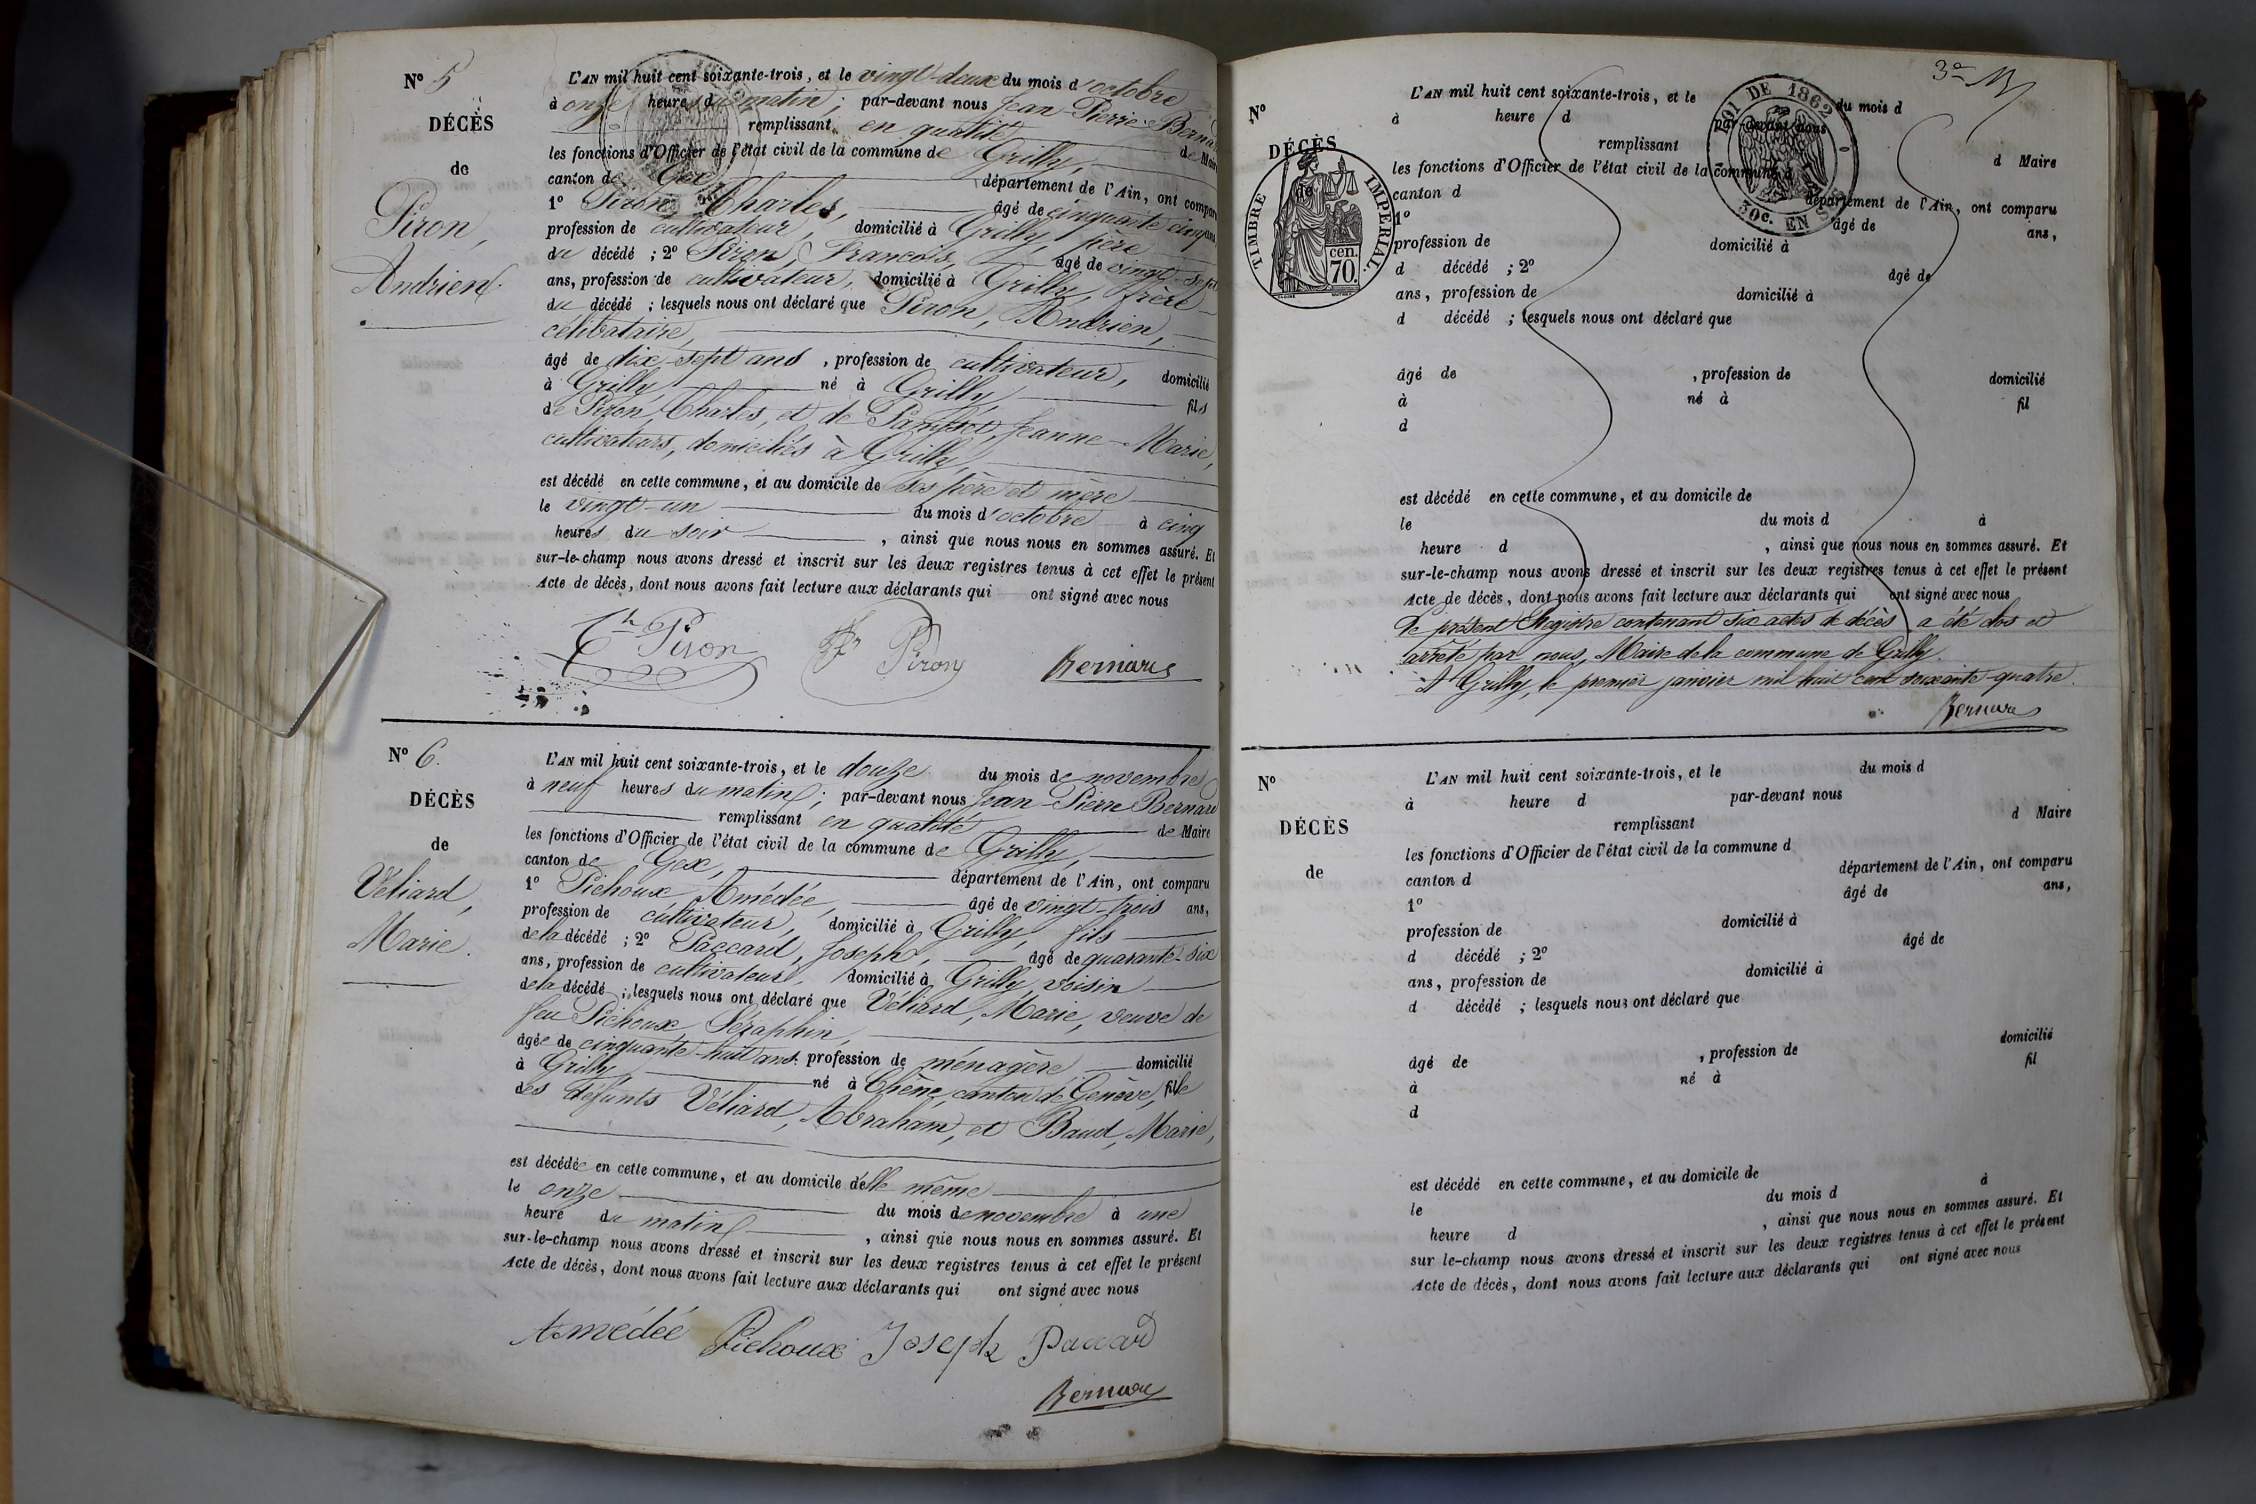 N° 5
DÉCÈS
de
Piron,
Andrien.
L'AN mil huit cent soixante-trois, et le vingt-deux du mois d'octobre
à onze heures du matin; par-devant nous Jean-Pierre Bernard
remplissant en qualité de Maire
les fonctions d'Officier de l'état civil de la commune de Grilly,
canton de Gex, département de l'Ain, ont comparu
1° Piron Charles, âgé de cinquante cinq ans
profession de cultivateur, domicilié à Grilly, père
du décédé ; 2° Piron, François, âgé de vingt-sept
ans, profession de cultivateur, domicilié à Grilly, frère
du décédé ; lesquels nous ont déclaré que Piron, Andrien,
célibataire,
âgé de dix-sept ans, profession de cultivateur, domicilié
à Grilly né à Grilly fils
de Piron, Charles, et de Jeanne-Marie,
cultivateurs, domiciliés à Grilly,
est décédé en cette commune, et au domicile de ses père et mère
le vingt-un du mois d'octobre à cinq
heures du soir, ainsi que nous nous en sommes assuré. Et
sur-le-champ nous avons dressé et inscrit sur les deux registres tenus à cet effet le présent
Acte de décès, dont nous avons fait lecture aux déclarants qui ont signé avec nous
Ch Piron Fr Piron Bernard
N° 6.
DÉCÈS
de
Véliard,
Marie.
L'AN mil huit cent soixante-trois, et le douze du mois de novembre
à neuf heures du matin; par-devant nous Jean-Pierre Bernard
remplissant en qualité de Maire
les fonctions d'Officier de l'état civil de la commune de Grilly,
canton de Gex, département de l'Ain, ont comparu
1° Pichoux Amédée, âgé de vingt-trois ans,
profession de cultivateur, domicilié à Grilly, fils
de la décédé ; 2° Paccard, Joseph, âgé de quarante-six
ans, profession de cultivateur, domicilié à Grilly, voisin
de la décédé ; lesquels nous ont déclaré que Véliard, Marie, veuve de
feu Pichoux, Séraphin,
âgée de cinquante-huit ans profession de ménagère domicilié
à Grilly né à Chêne, canton de Genève, fille
des défunts Véliard, Abraham, et Baud, Marie,
est décédée en cette commune, et au domicile d'elle même
le onze du mois de novembre à une
heure du matin, ainsi que nous nous en sommes assuré. Et
sur-le-champ nous avons dressé et inscrit sur les deux registres tenus à cet effet le présent
Acte de décès, dont nous avons fait lecture aux déclarants qui ont signé avec nous
Amédée Pichoux Joseph Paccard
Bernard
N°
DÉCÈS
de
TIMBRE IMPÉRIAL.
cen.
70.
LOI DE 1862
30c. EN SUS
L'AN mil huit cent soixante-trois, et le du mois d
à heure d par-devant nous
remplissant d Maire
les fonctions d'Officier de l'état civil de la commune d
canton d département de l'Ain, ont comparu
1° âgé de ans,
profession de domicilié à
d décédé ; 2° âgé de
ans, profession de domicilié à
d décédé ; lesquels nous ont déclaré que
âgé de , profession de domicilié
à né à fil
d
est décédé en cette commune, et au domicile de
le du mois d à
heure d , ainsi que nous nous en sommes assuré. Et
sur-le-champ nous avons dressé et inscrit sur les deux registres tenus à cet effet le présent
Acte de décès, dont nous avons fait lecture aux déclarants qui ont signé avec nous
Le présent Registre contenant six actes de décès a été clos et
arrêté par nous, Maire de la commune de Grilly.
A Grilly, le premier janvier mil huit cent soixante-quatre.
Bernard
N°
DÉCÈS
de
L'AN mil huit cent soixante-trois, et le du mois d
à heure d par-devant nous
remplissant d Maire
les fonctions d'Officier de l'état civil de la commune d
canton d département de l'Ain, ont comparu
1° âgé de ans,
profession de domicilié à
d décédé ; 2° âgé de
ans, profession de domicilié à
d décédé ; lesquels nous ont déclaré que
âgé de , profession de domicilié
à né à fil
d
est décédé en cette commune, et au domicile de
le du mois d à
heure d , ainsi que nous nous en sommes assuré. Et
sur le-champ nous avons dressé et inscrit sur les deux registres tenus à cet effet le présent
Acte de décès, dont nous avons fait lecture aux déclarants qui ont signé avec nous